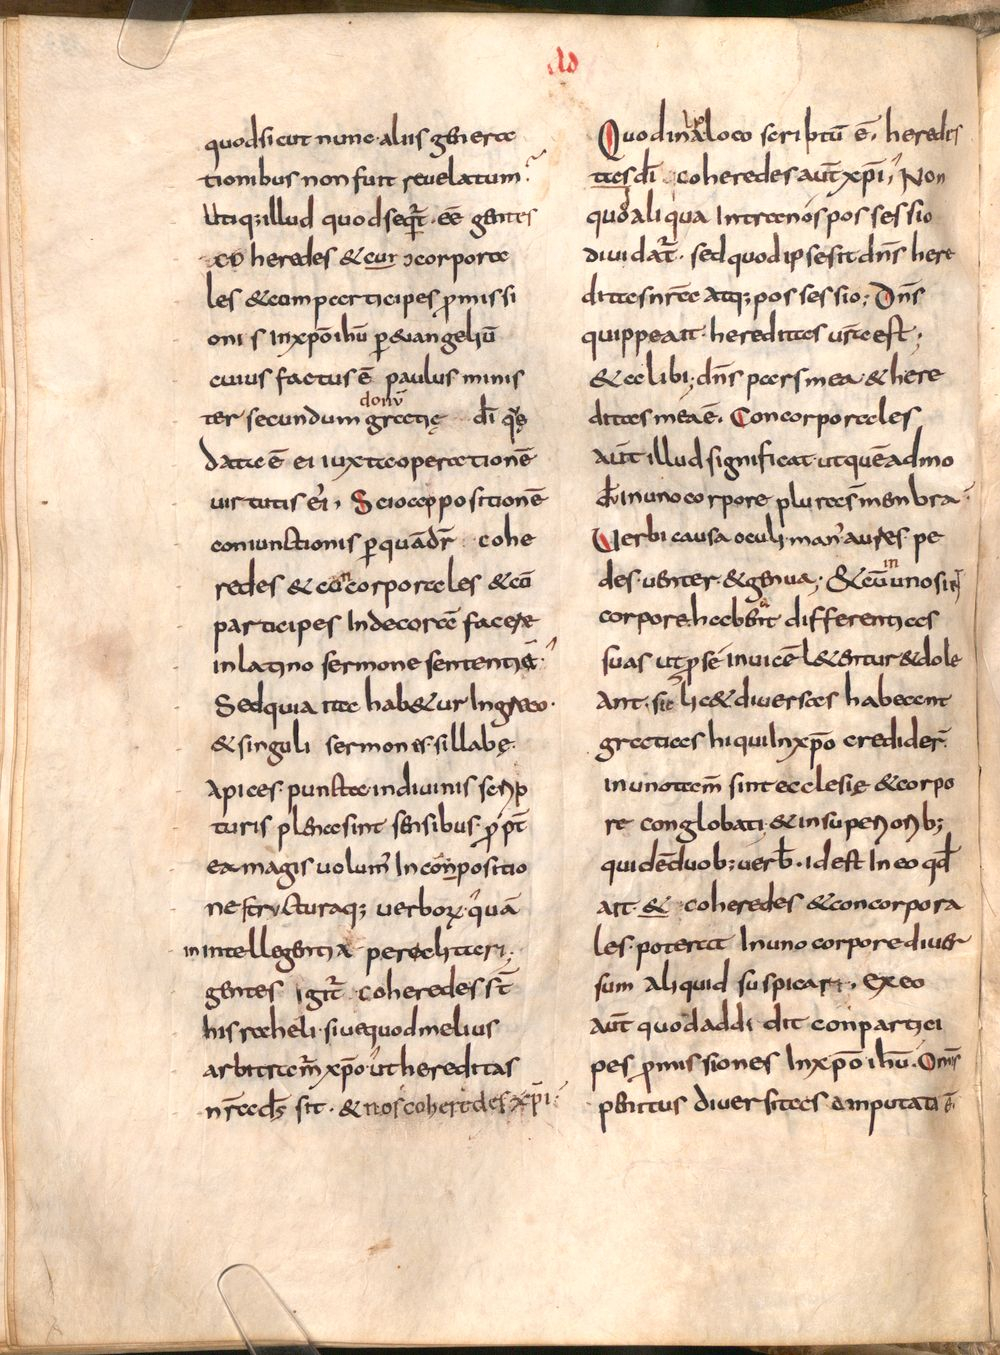 Ad
quod sicut nunc aliis genera
tionibus non fuit revelatum
Utiq; illud quod seqr̄t. eē gentes
co heredes & cur ɔcorpora
les & comparticipes p̄missi
onis In xp̄o ihū p̄ evangeliū
cuius factus ē paulus minis
donū
ter secundum gratię dī quę
data ē ei iuxta operationē
virtutis ei', Scio adpositionē
coniunctionis p̄ quā dr̄ cohe
redes & concorporales & cō
participes Indecorā facere
in latino sermone sententiā
Sed quia ita hab&ur In greco
& singuli sermones sillabę
Apices puncta in divinis scrip
turis plena sint sensibus p̄p̄t
ea magis volum' In conpositio
ne structuraq; verborum quā
in intellegentia periclitari;
gentes igit̄ coheredes st̄
hisraheli sive quod melius
arbitram̄ xp̄o ut hereditas
nr̄a ds̄ sit & nos coheredes xp̄i
Quod in alio loco scriptū ē, heredi
tas dī coheredes aut̄ xp̄i, Non
quo aliqua Intra nos possessio
dividat̄. sed quod ipse sit dn̄s here
ditas nr̄a atq; possessio; Dn̄s
quippe ait hereditas vr̄a est;
& alibi; dn̄s pars mea & here
ditas mea ē. Concorporales
aut̄ illud significat ut quēadmo
dū in uno corpore plura s̄ menbra
Verbi causa oculi man' aures pe
des venter & genua; & cū in uno sint
corpore habent differentias
suas ut p̄ se invicē l&entur & dole
Ant. sic h& diversas habeant
gratias hi qui In xp̄o crediderꝰ
in uno tam̄ sint ecclesię & corpo
re conglobati & in superiorib;
qui dē duob; verb̄. id est In eo qd̄
ait & coheredes & concorpora
les poterat In uno corpore diver
sum aliquid suspicari, Ex eo
aut̄ quod addidit conpartici
pes p̄missiones In xp̄o ihū. Om̄is
penitus diversitas amputata ē